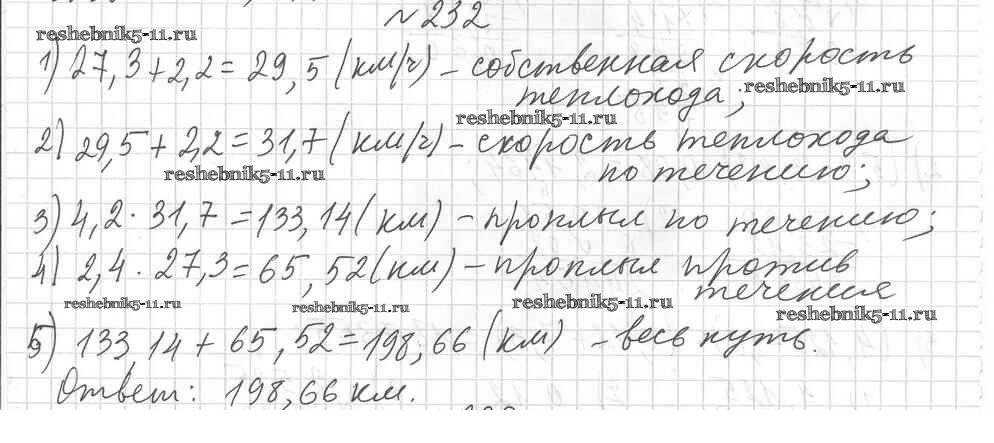 № 232
reshebnik5-11.ru
1) 27,3+2,2 = 29,5 (км/ч) – собственная скорость
теплохода; reshebnik5-11.ru
reshebnik5-11.ru
2) 29,5 + 2,2 = 31,7 (км/ч) – скорость теплохода
reshebnik5-11.ru по течению;
3) 4,2 · 31,7 = 133,14 (км) – проплыл по течению;
4) 2,4 · 27,3 = 65,52 (км) – проплыл против
течения
reshebnik5-11.ru reshebnik5-11.ru reshebnik5-11.ru reshebnik5-11.ru
5) 133,14 + 65,52 = 198,66 (км) – весь путь.
Ответ: 198,66 км.